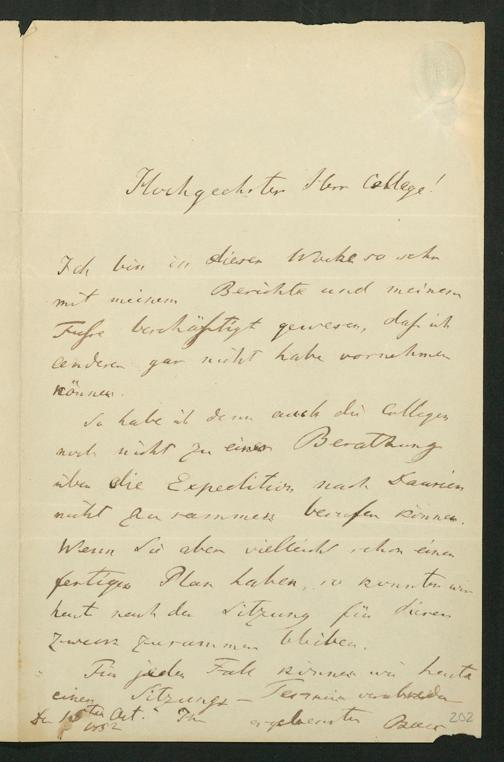 Hochgeehrter Herr College!
Ich bin in dieser Woche so sehr
mit meinem Berichte und meinem
Fusse beschäftigt gewesen, dass ich
anderes gar nicht habe vornehmen
können.
So habe ich denn auch die Collegen
noch nicht zu einer Berathung
über die Expedition nach Daurien
nicht zusammen berufen können.
Wenn Sie aber vielleicht schon einen
fertigen Plan haben, so könnten wir
heut nach der Sitzung für diesen
Zweck zusammen bleiben.
Für jeden Fall können wir heute
einen Sitzungs-Termin verabreden
Ihr ergebenster Baer
Den 15ten Oct.
1852
202